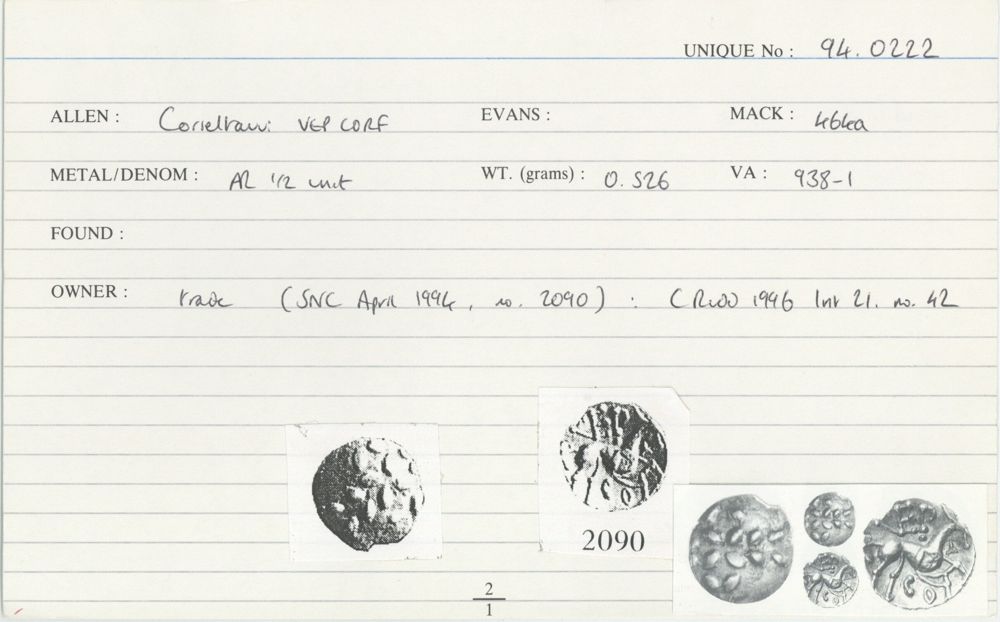 UNIQUE No : 94.0222
ALLEN : Corieltauvi VEP CORF EVANS : MACK : 464a
METAL/DENOM : AR 1/2 unit WT. (grams) : 0.526 VA : 938-1
FOUND :
OWNER : trade (SNC April 1994, no. 2090) : C Rudd 1996 list 21. no. 42
2090
2
1